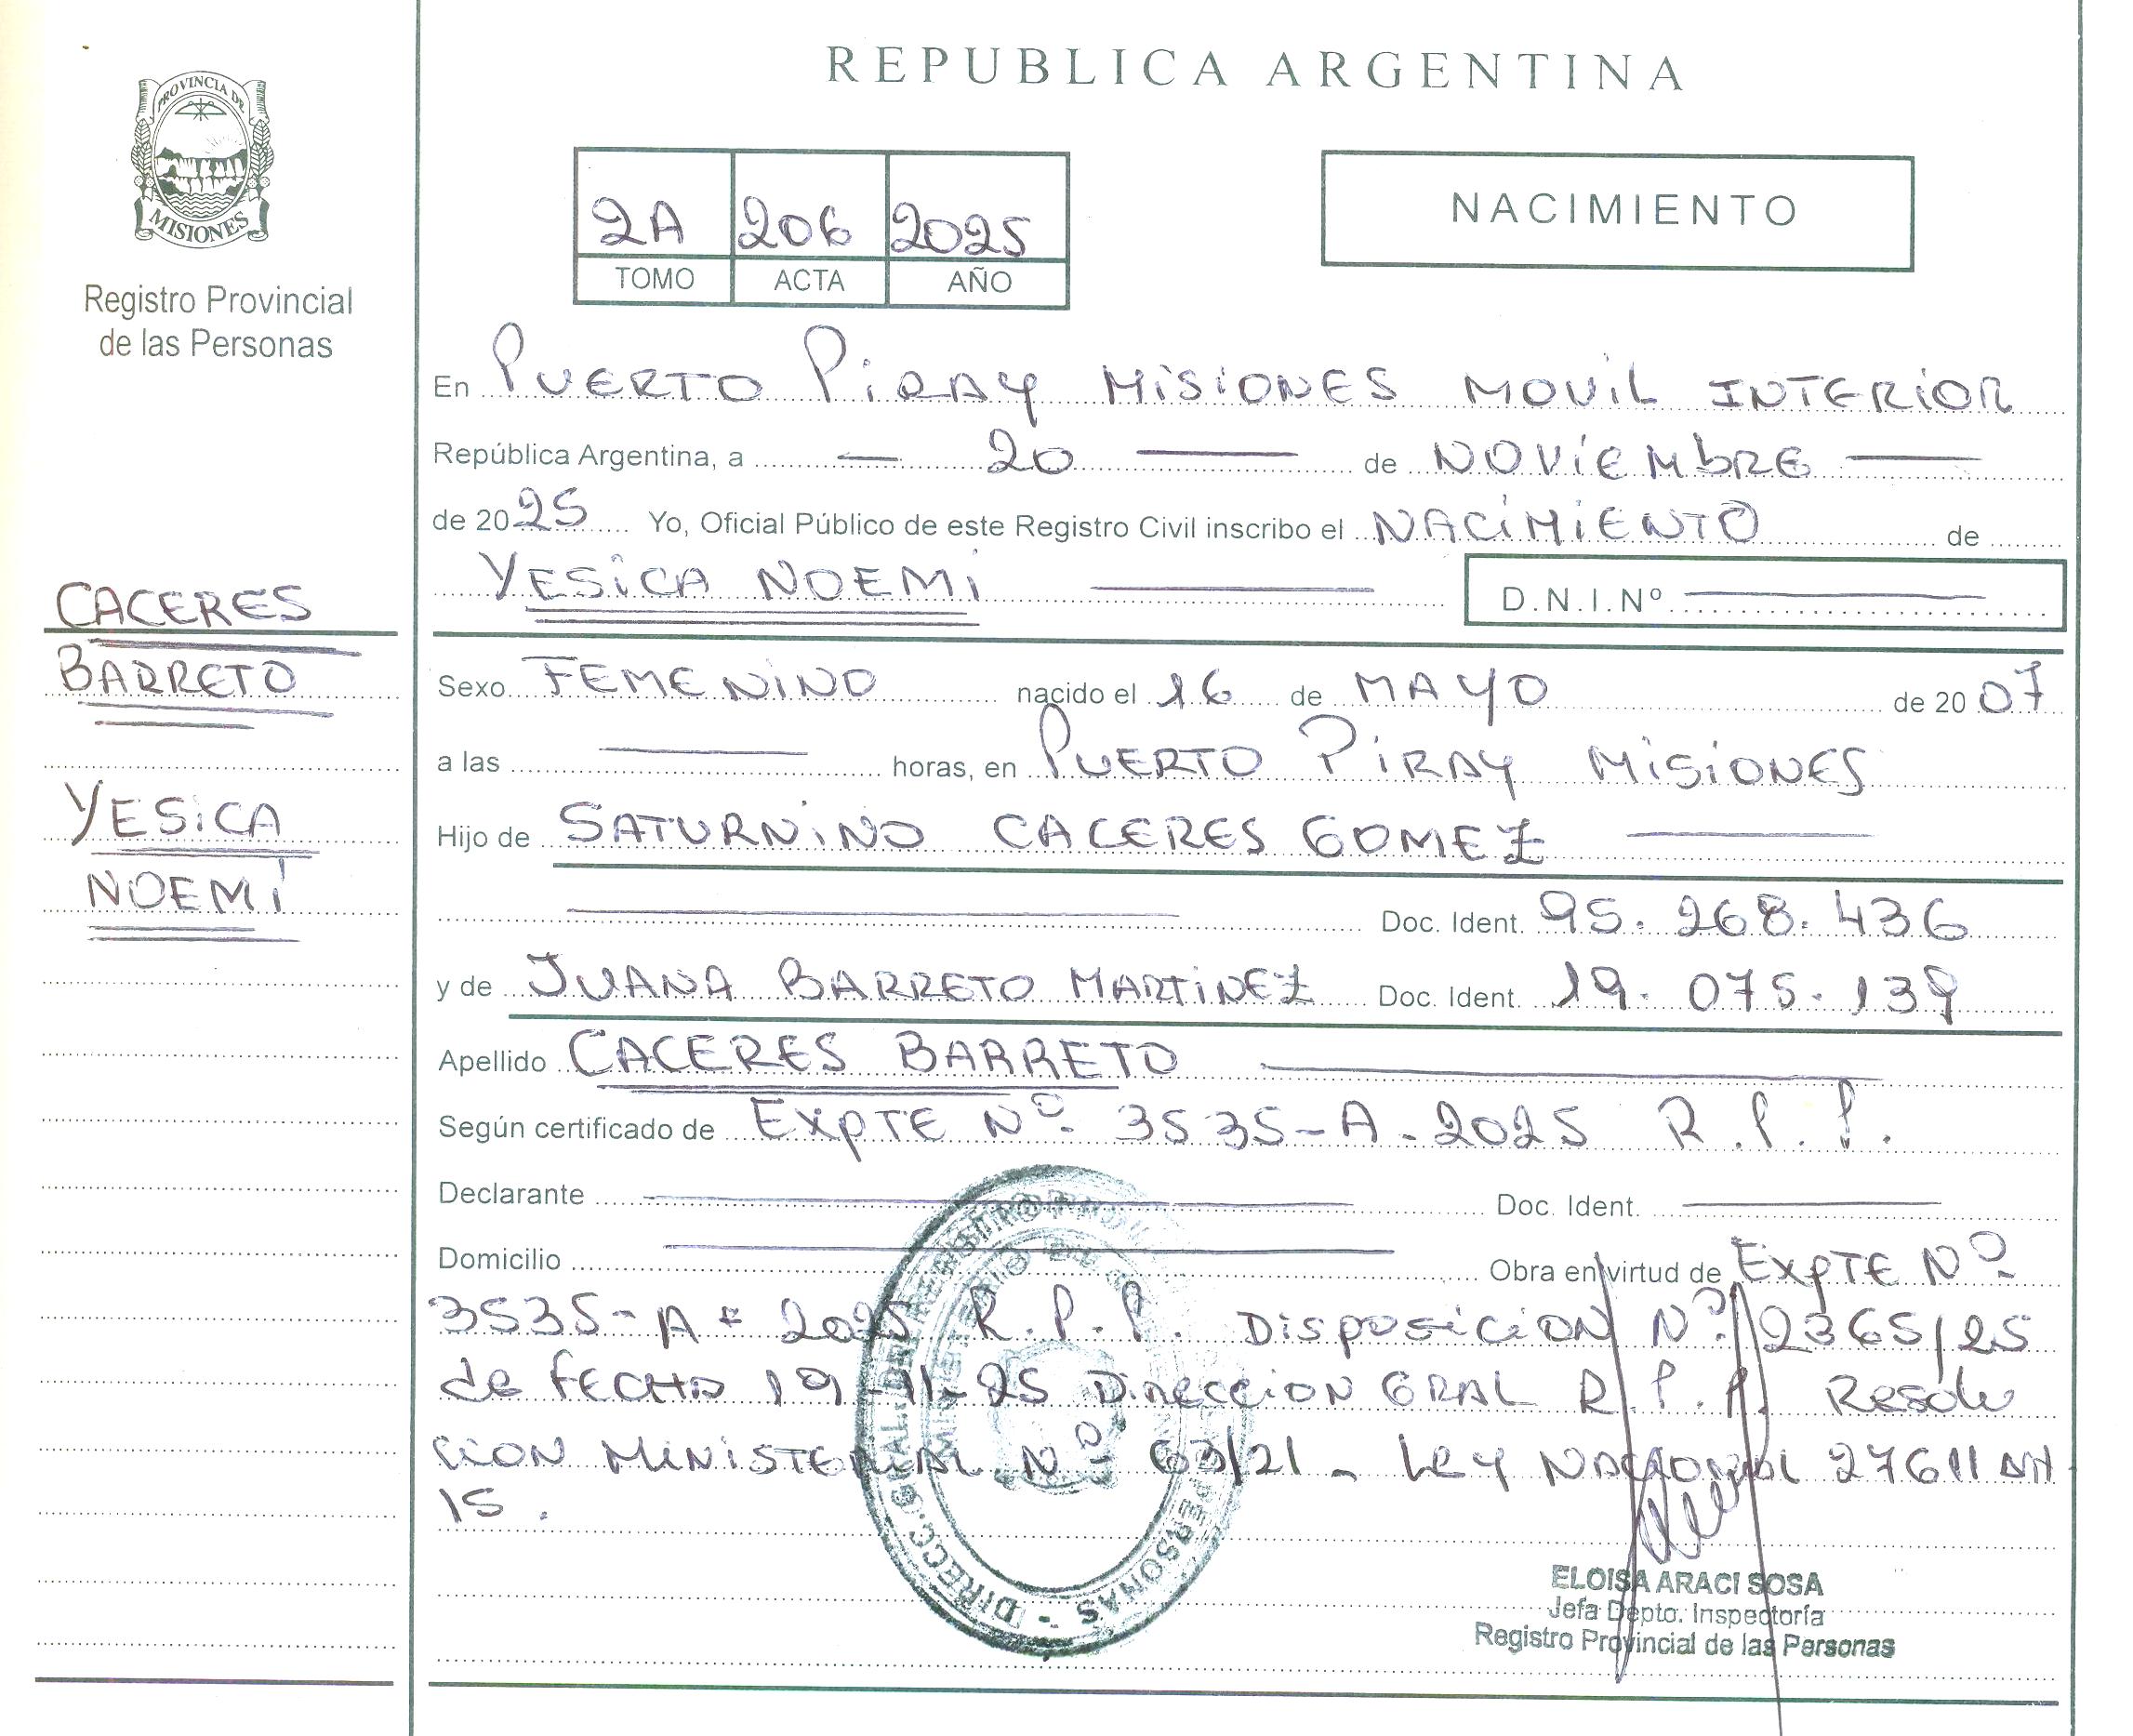 REPUBLICA ARGENTINA
PROVINCIA DE
MISIONES
Registro Provincial
de las Personas
2A 206 2025
TOMO ACTA AÑO
NACIMIENTO
En PUERTO PIRAY MISIONES MOVIL INTERIOR
República Argentina, a — 20 — de NOVIEMBRE —
de 2025 Yo, Oficial Público de este Registro Civil inscribo el NACIMIENTO de
YESICA NOEMI — D.N.I.Nº —
CACERES
BARRETO
YESICA
NOEMÍ
Sexo FEMENINO nacido el 16 de MAYO de 2007
a las — horas, en PUERTO PIRAY MISIONES
Hijo de SATURNINO CACERES GOMEZ —
— Doc. Ident. 95.268.436
y de JUANA BARRETO MARTINEZ Doc. Ident. 19.075.139
Apellido CACERES BARRETO —
Según certificado de EXPTE Nº 3535-A-2025 R.P.P.
Declarante — Doc. Ident. —
Domicilio — Obra en virtud de EXPTE Nº
3535-A-2025 R.P.P. DISPOSICION Nº 2365/25
de FECHA 19-11-25 DIRECCION GRAL R.P.P. Resolu
CION MINISTERIAL Nº 63/21 - LEY NACIONAL 27611 Art
15.
DIRECC. GRAL. DEL REGISTRO PERSONAS
MINISTERIO DE
ELOISA ARACI SOSA
Jefa Depto. Inspectoría
Registro Provincial de las Personas